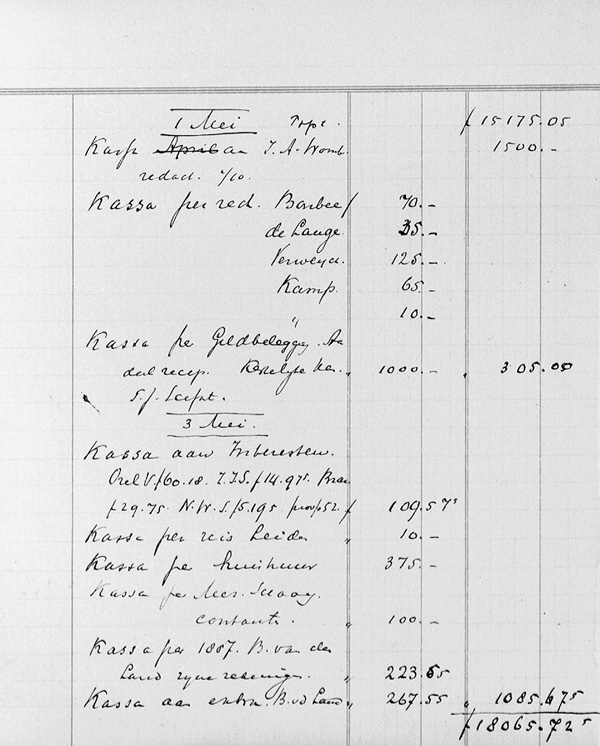 1 Mei Trpt. f 15175.05
Kassa aan J. A. Womb. 1500.-
redact. 7/10.
Kassa per red. Barbee f 70.-
de Lange 35.-
Verweyd. 125.-
Kamp. 65.-
" 10.-
Kassa pe Geldbelegg. Aan
deel recep. " 1000.- " 305.00
3 Mei.
Kassa aan Interesten.
Obl V f 60.18. J.J.S. f 14.97⁵.
f 29.75. N.W.S. f 5.19⁵ f 109.57⁵
Kassa per reis Leiden " 10.-
Kassa pe huishuur 375.-
Kassa pe
contanti. " 100.-
Kassa per 1887. B. van der
Land zyne rekening. " 223.65
Kassa aan extra. B. v d Land " 267.55 " 1085.67⁵
f 18065.72⁵